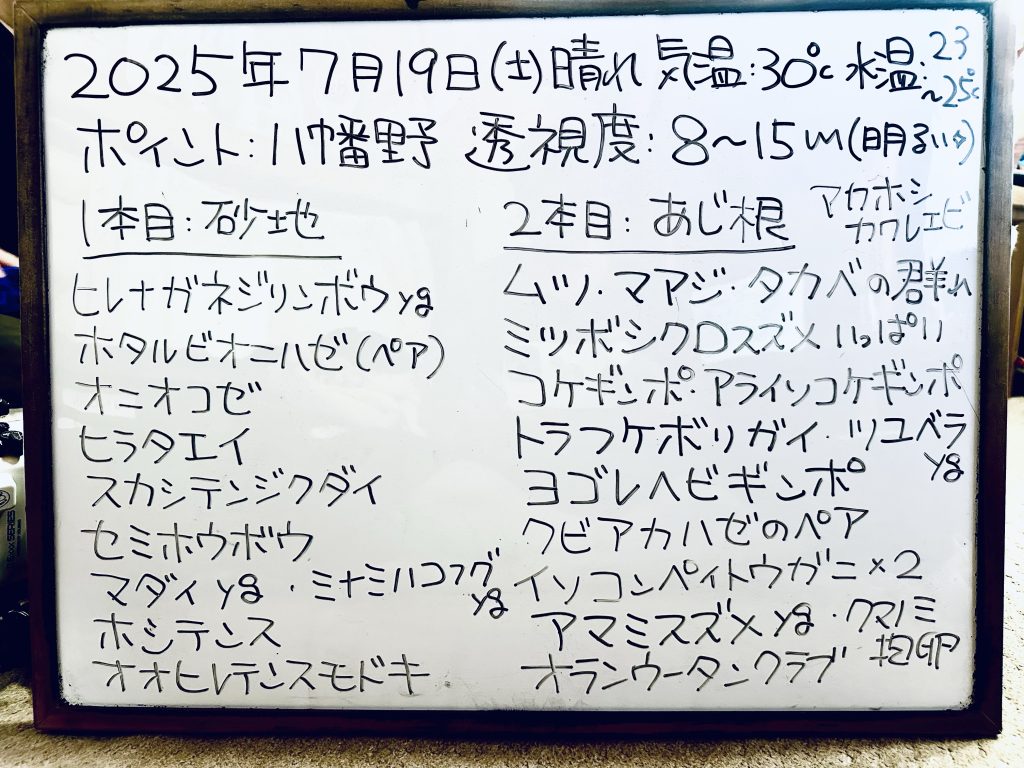 2025年7月19日(土)晴れ 気温:30℃ 水温:23~25℃
ポイント:八幡野 透視度:8~15m(明るい♪)
1本目:砂地
ヒレナガネジリンボウyg
ホタルビオニハゼ(ペア)
オニオコゼ
ヒラタエイ
スカシテンジクダイ
セミホウボウ
マダイyg・ミナミハコフグyg
ホシテンス
オオヒレテンスモドキ
2本目:あじ根
アカホシカクレエビ
ムツ・マアジ・タカベの群れ
ミツボシクロスズメいっぱい
コケギンポ・アライソコケギンポ
トラフケボリガイ・ツユベラyg
ヨゴレヘビギンポ
クビアカハゼのペア
イソコンペイトウガニ×2
アマミスズメyg・クマノミ抱卵
オランウータンクラブ